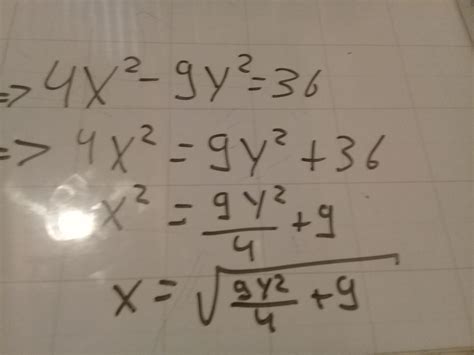 => 4x² - 9y² = 36
=> 4x² = 9y² + 36
x² = 9y²/4 + 9
x = √(9y²/4 + 9)